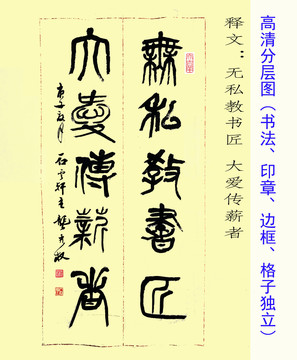 高清分层图（书法、印章、边框、格子独立）
释文：无私教书匠 大爱传薪者
無私教書匠
大愛傳薪者